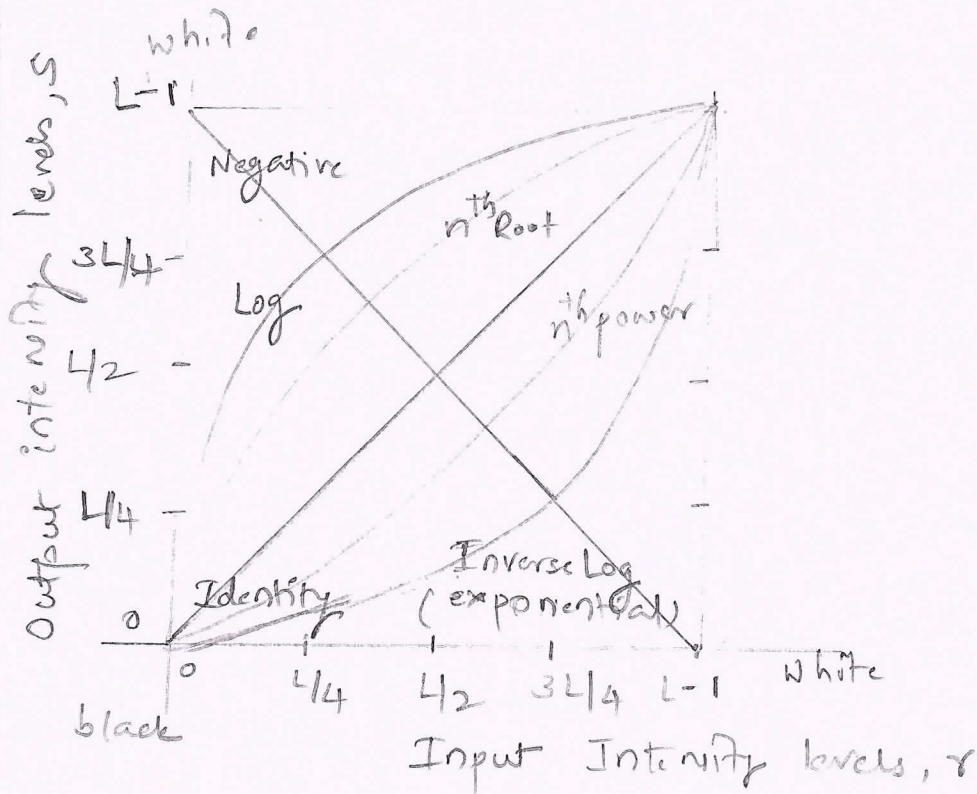 white
Output intensity levels, s
L-1
Negative
nth Root
3L/4
Log
nth power
L/2
L/4
Inverse Log
(exponential)
Identity
0
0
L/4
L/2
3L/4
L-1
white
black
Input Intensity levels, r